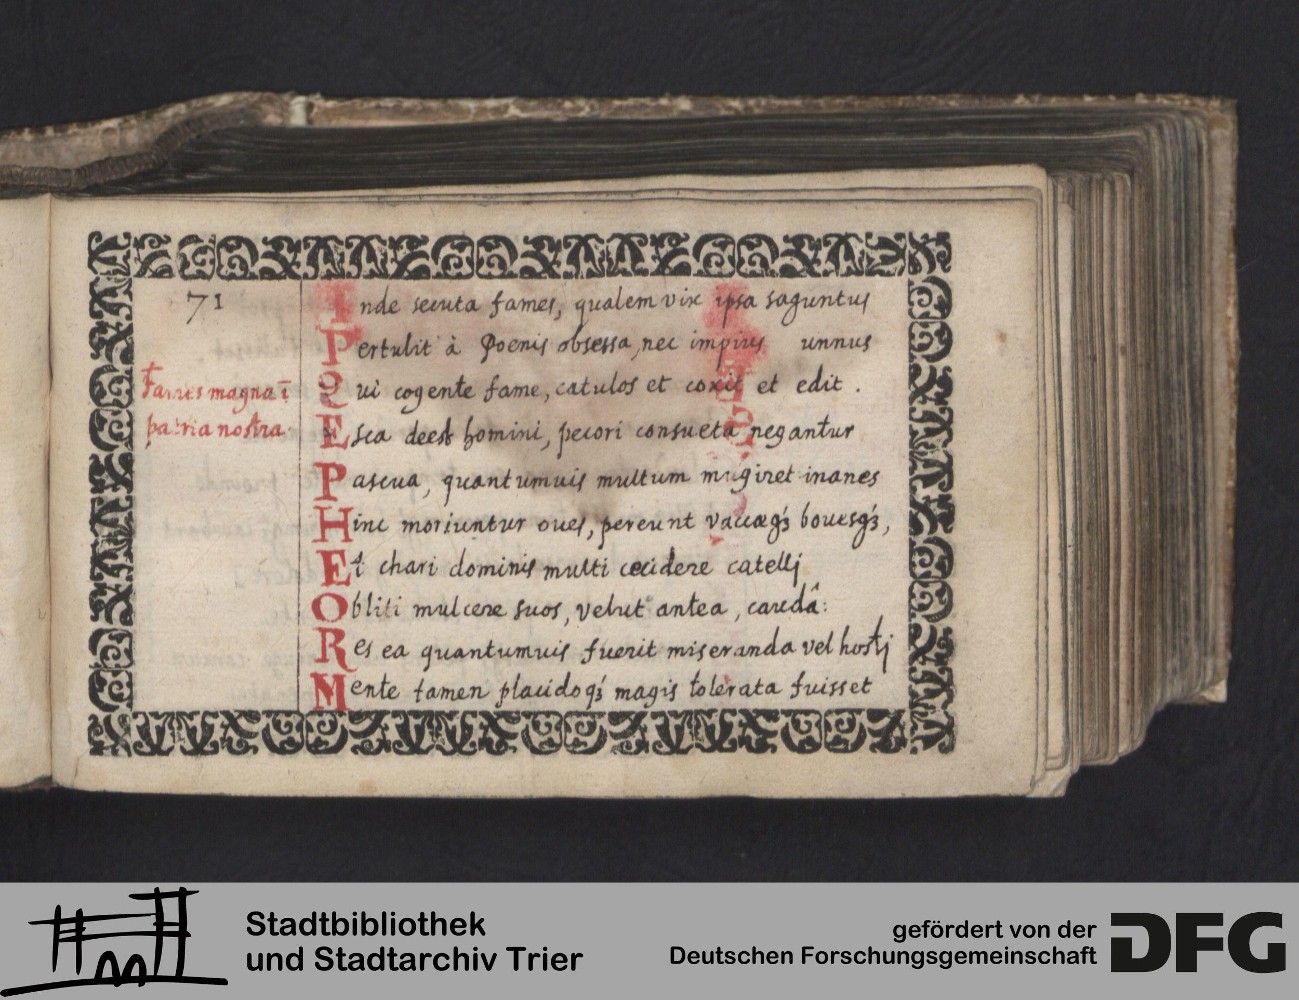 71
Inde secuta fames, qualem vix ipsa saguntus
Pertulit à Poenis obsessa, nec impius unnus
Qui cogente fame, catulos et coxit et edit.
Fames magna ī
patria nostra.
Esca deest homini, pecori consueta negantur
Pascua, quantumuis multum mugiret inanes
Hinc moriuntur oues, pereunt vaccæqꝫ bouesqꝫ,
Et chari dominis multi cecidere catelli
Obliti mulcere suos, velut antea, caudâ:
Res ea quantumuis fuerit miseranda vel hosti
Mente tamen placidoqꝫ magis tolerata fuisset
Stadtbibliothek
und Stadtarchiv Trier
gefördert von der
Deutschen Forschungsgemeinschaft
DFG